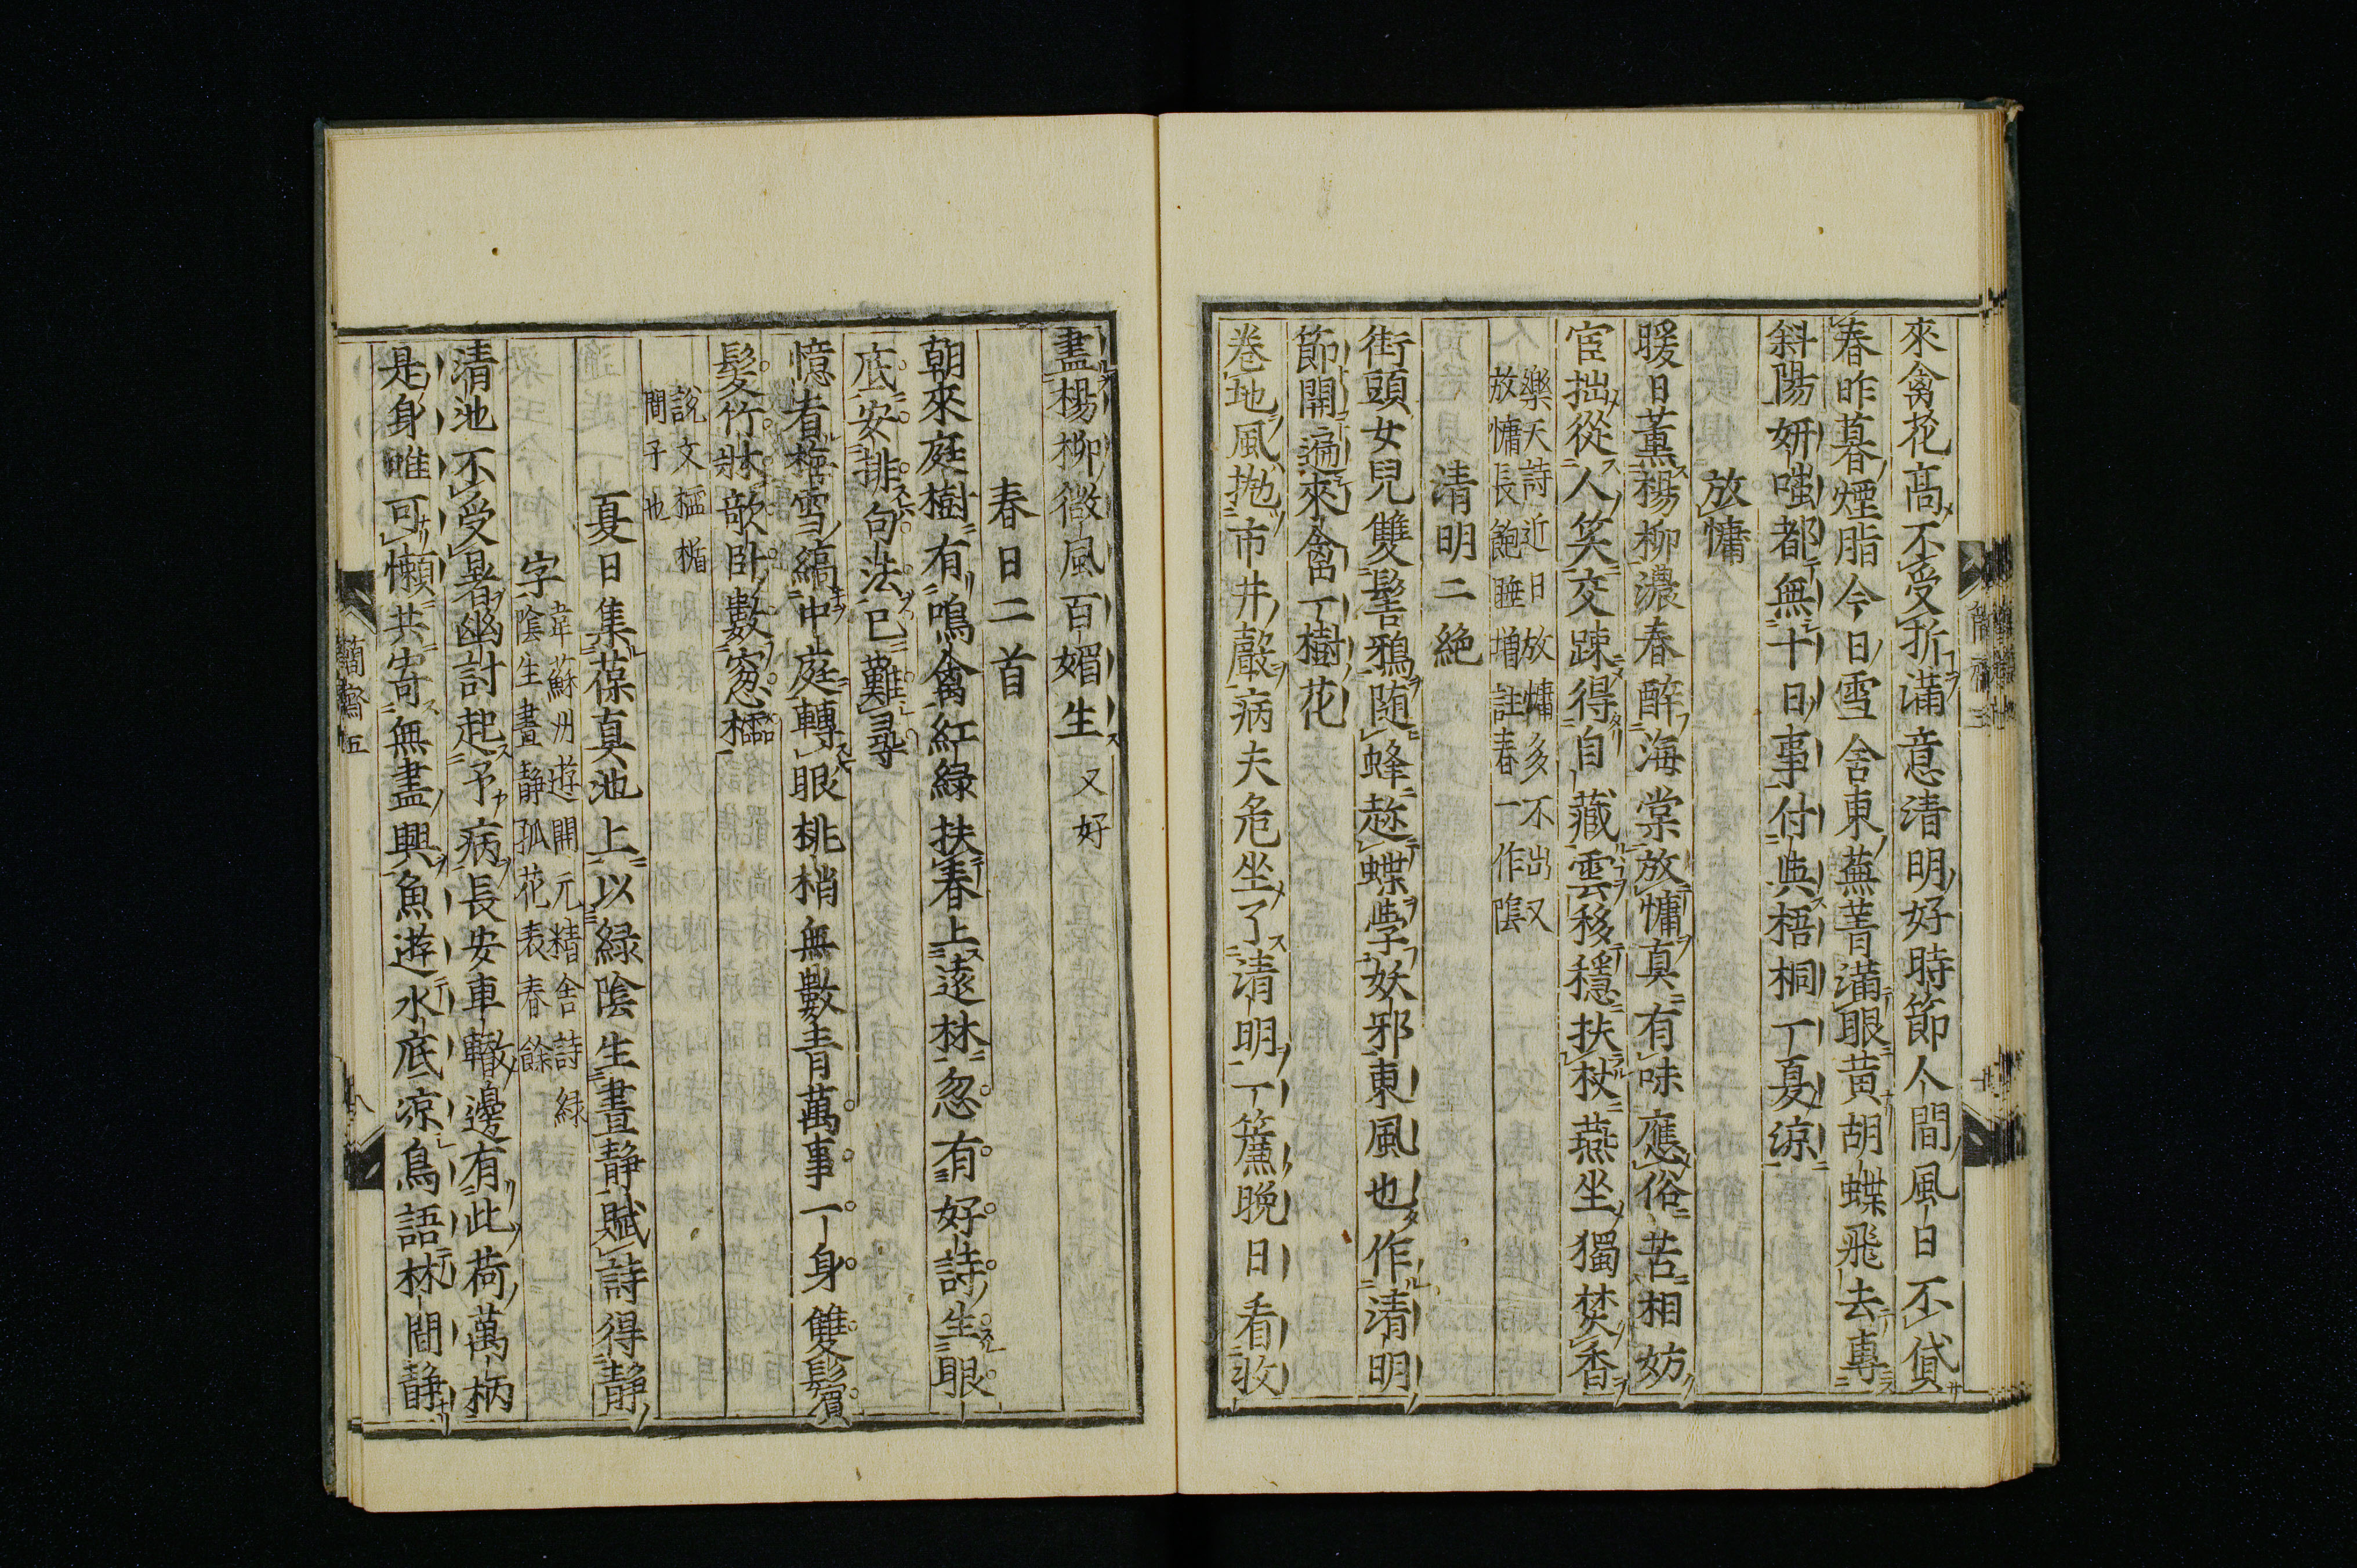 來禽花高不受折滿意清明好時節人間風日不貸
春昨暮煙脂今日雪舍東蕪菁滿眼黃胡蝶飛去專
斜陽妍嗤都無十日事付與梧桐一夏涼
放慵
暖日薰楊柳濃春醉海棠放慵真有味應俗苦相妨
宦拙從人笑交踈得自藏雲移穩扶杖燕坐獨焚香
樂天詩近日放慵多不出又
放慵長飽睡增註春一作陰
清明二絶
街頭女兒雙髻鴉隨蜂趂蝶學妖邪東風也作清明
節開遍來禽一樹花
卷地風抛市井聲病夫危坐了清明一簾晚日看收
盡楊柳微風百媚生又好
春日二首
朝來庭樹有鳴禽紅綠扶春上遠林忽有好詩生眼
底安排句法已難尋
憶看梅雪縞中庭轉眼桃梢無數青萬事一身雙鬢
髮竹牀欹卧數窓櫺
說文櫺楯
間子也
夏日集葆真池上以綠陰生晝靜賦詩得靜
字
韋蘇州遊開元精舍詩綠
陰生晝靜孤花表春餘
清池不受暑幽討起予病長安車轍邊有此荷萬柄
是身唯可懶共寄無盡興魚遊水底涼鳥語林間靜
簡齋五
八